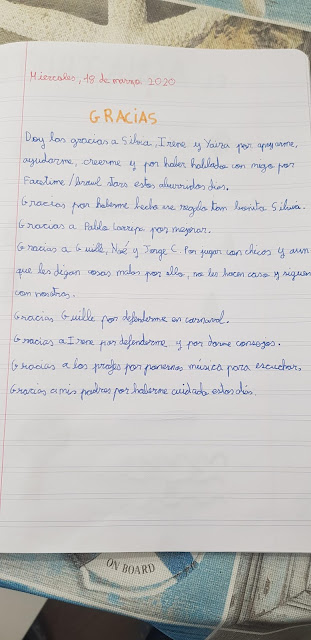 Miércoles, 18 de marzo 2020
GRACIAS
Doy las gracias a Silvia, Irene y Yaiza por apoyarme,
ayudarme, creerme y por haber hablado con migo por
Facetime / brawl stars estos aburridos días.
Gracias por haberme hecho ese regalo tan bonito Silvia.
Gracias a Pablo por mejorar.
Gracias a Guille, Noé y Jorge C. Por jugar con chicas y aun
que les digan cosas malas por ello, no les hacen caso y siguen
con nosotras.
Gracias Guille por defenderme en carnaval.
Gracias a Irene por defenderme y por darme consejos.
Gracias a los profes por ponernos música para escuchar.
Gracias a mis padres por haberme cuidado estos días.
ON BOARD